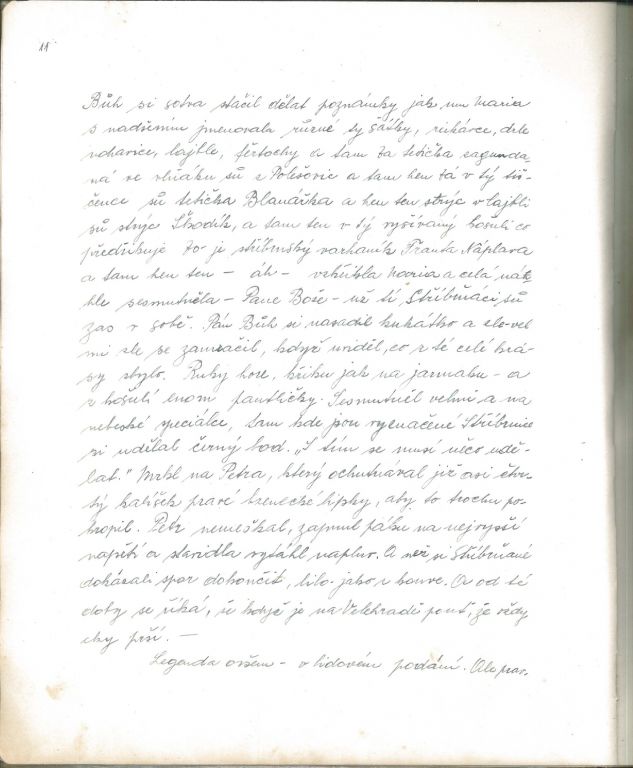 11
Bůh si sotva stačil dělat poznámky jak mu Maria
s nadšením jmenovala různé ty šátky, rukávce, dele
nohavice, lajble, fěrtochy a tam ta tetička zagunda-
ná ve vlňáku sů z Polešovic a tam hen tá v tý tis-
čence sů tetička Blanářka a hen ten strýc v lajbli
sů strýc Škodík, a tam ten v tý vyšívaný košuli co
předzhubuje to je stříbrnský varhaník Franta Náplava
a tam hen ten - ah - vzkřikla Maria a celá náh-
hle sesmutněla - Pane Bože - už tí Stříbrňáci sů
zas v sobě. Pán Bůh si nasadil kukátko a slo-vel
mi zle se zamračil, když uviděl, co z té celé krá-
sy zbylo. Ruky hore, křiku jak na jarmaku - a
z košulí enom pantličky. Sesmutněl velmi a na
nebeské speciálce, tam kde jsou vyznačené Stříbrnice
si udělal černý bod. „S tím se musí něco udě-
lat." Mrkl na Petra, který ochutnával již asi čtvr-
tý kalíšek pravé lipky, aby to trochu po-
kropil. Petr nemeškal, zapnul páku na nejvyšší
napětí a stavidla vytáhl naplno. A než si Stříbrňané
dokázali spor dokončit, lilo jako z konve. A od té
doby se říká, že když je na Velehradě pouť, že vždy-
cky prší. —
Legenda ovšem - v lidovém podání. Ale prav-